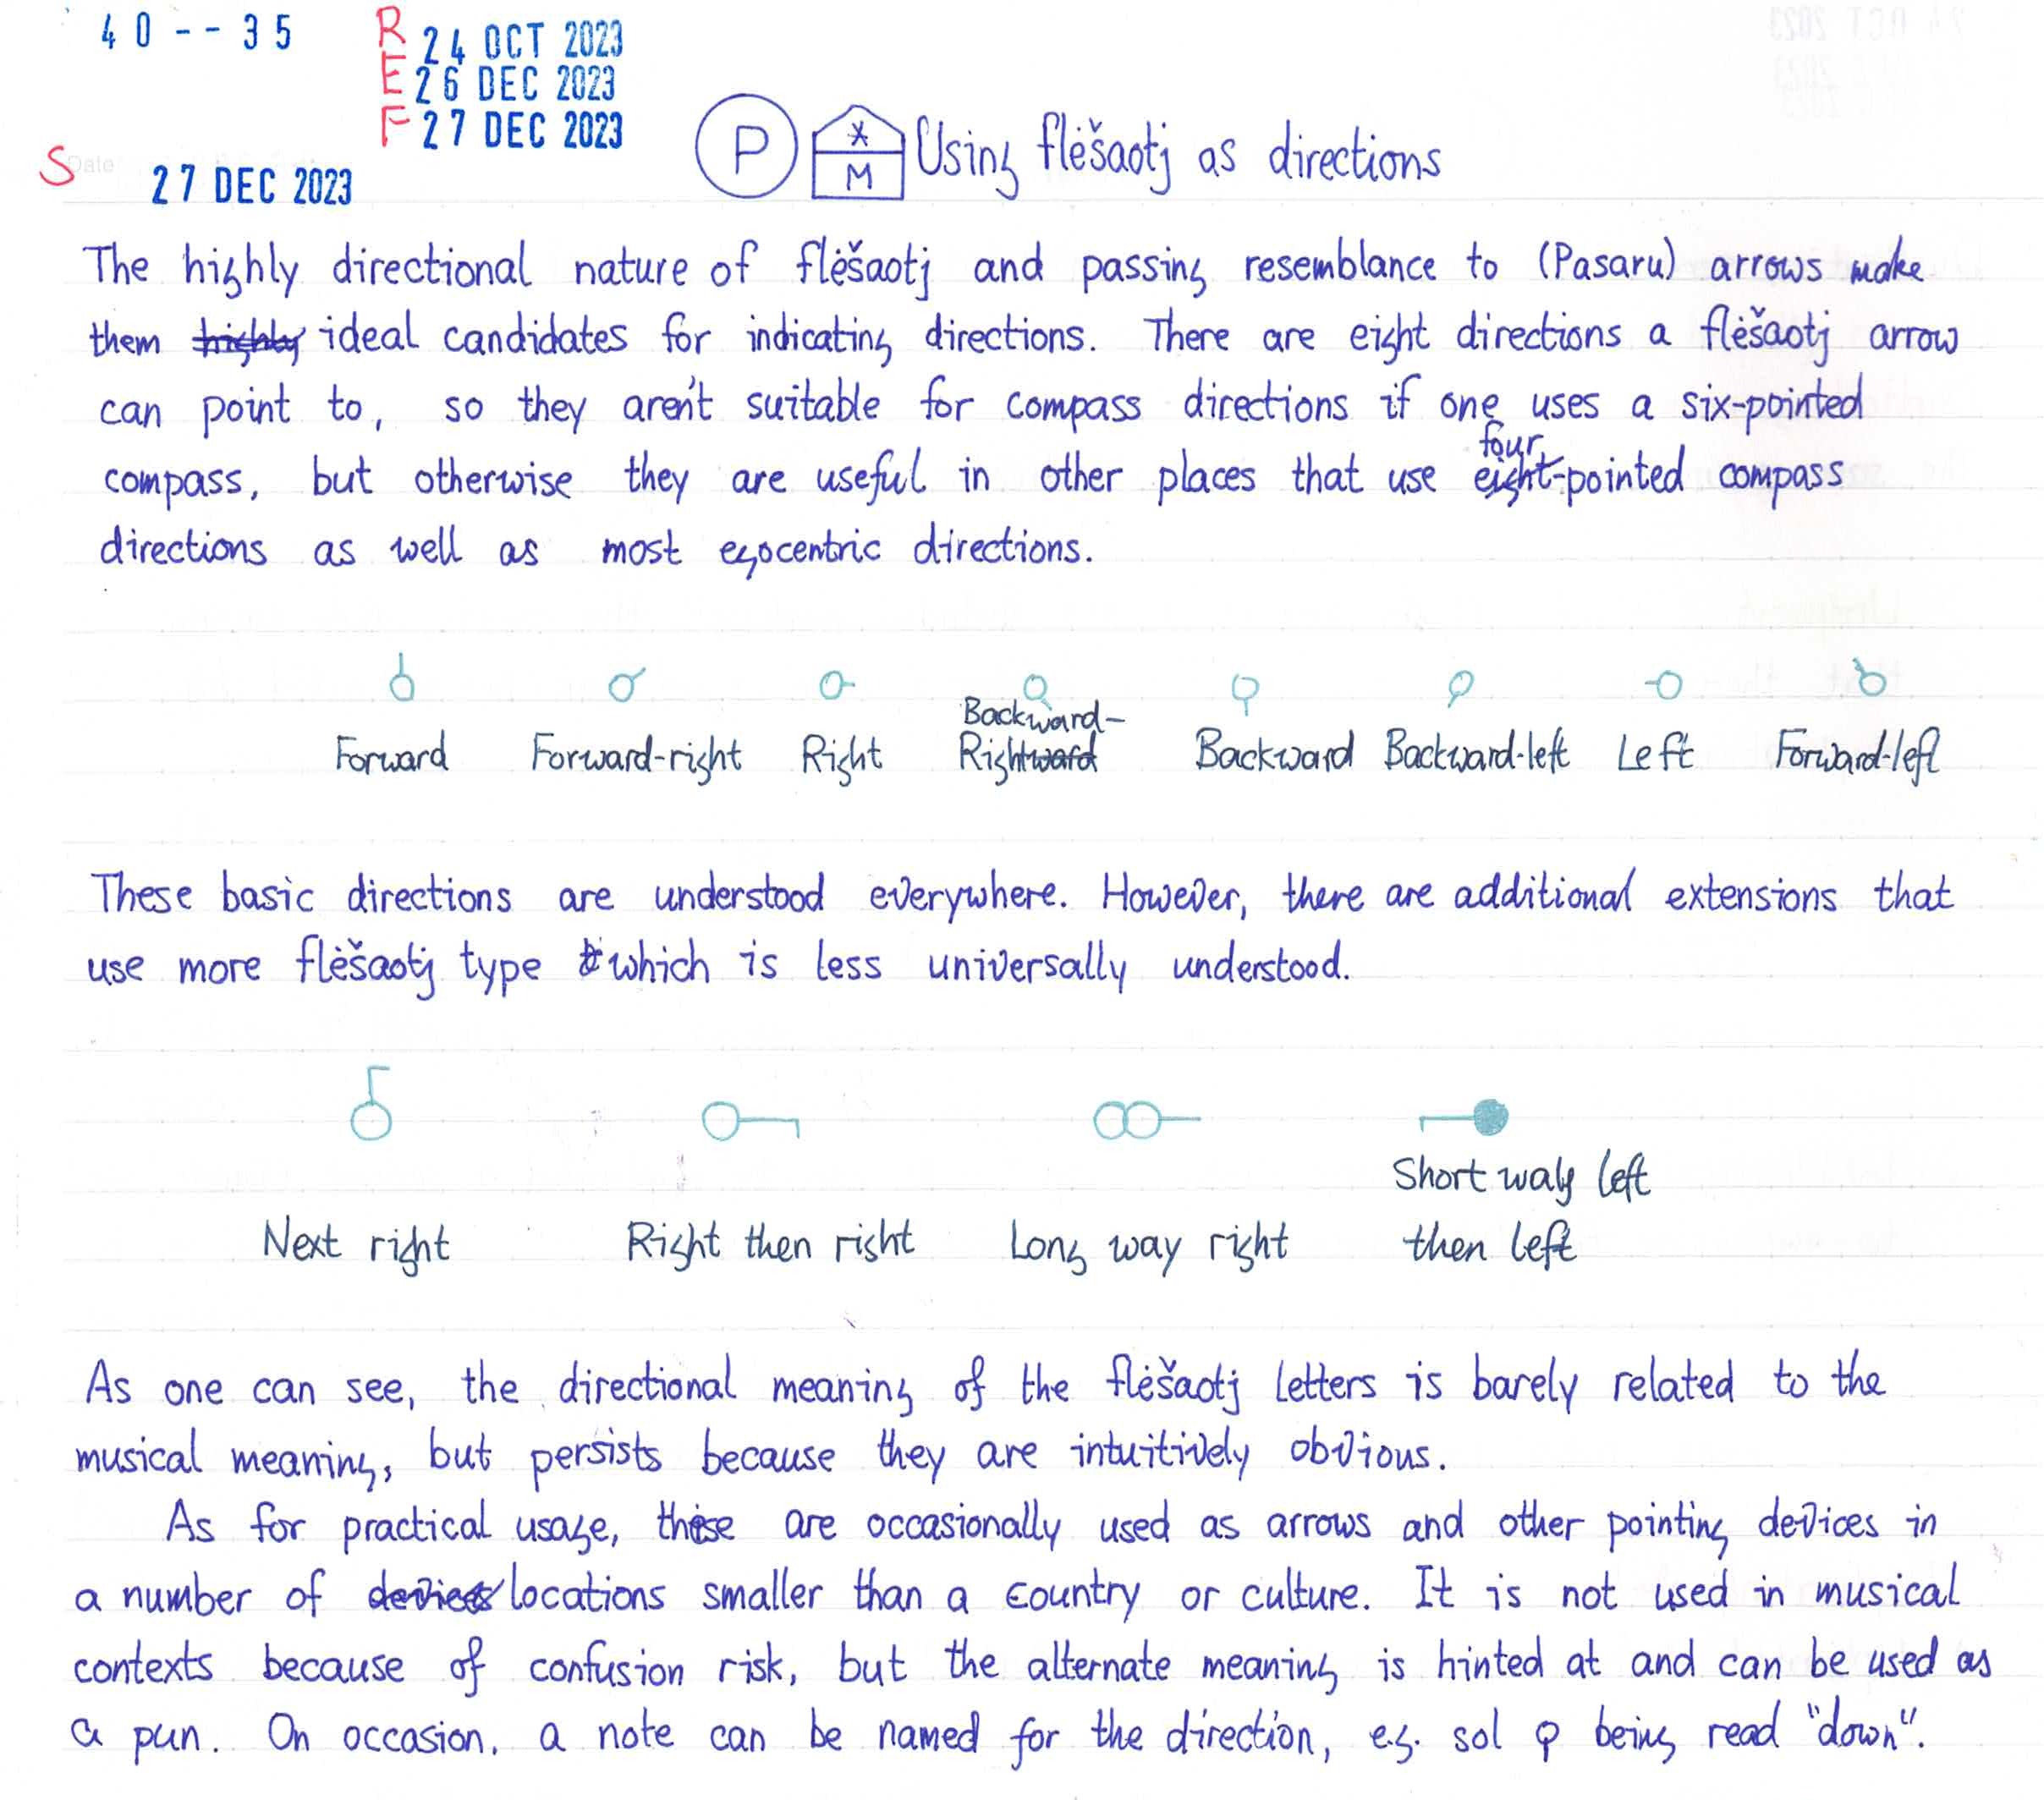 40--35
REF
24 OCT 2023
26 DEC 2023
27 DEC 2023
S Date 27 DEC 2023
P * M Using flėšaotj as directions
The highly directional nature of flėšaotj and passing resemblance to (Pasaru) arrows make
them highly ideal candidates for indicating directions. There are eight directions a flėšaotj arrow
can point to, so they aren't suitable for compass directions if one uses a six-pointed
four
compass, but otherwise they are useful in other places that use eight-pointed compass
directions as well as most egocentric directions.
Backward-
Forward Forward-right Right Rightward Backward Backward-left Left Forward-left
These basic directions are understood everywhere. However, there are additional extensions that
use more flėšaotj type which is less universally understood.
Short way left
Next right Right then right Long way right then left
As one can see, the directional meaning of the flėšaotj letters is barely related to the
musical meaning, but persists because they are intuitively obvious.
As for practical usage, these are occasionally used as arrows and other pointing devices in
a number of devices locations smaller than a country or culture. It is not used in musical
contexts because of confusion risk, but the alternate meaning is hinted at and can be used as
a pun. On occasion, a note can be named for the direction, e.g. sol ϙ being read "down".